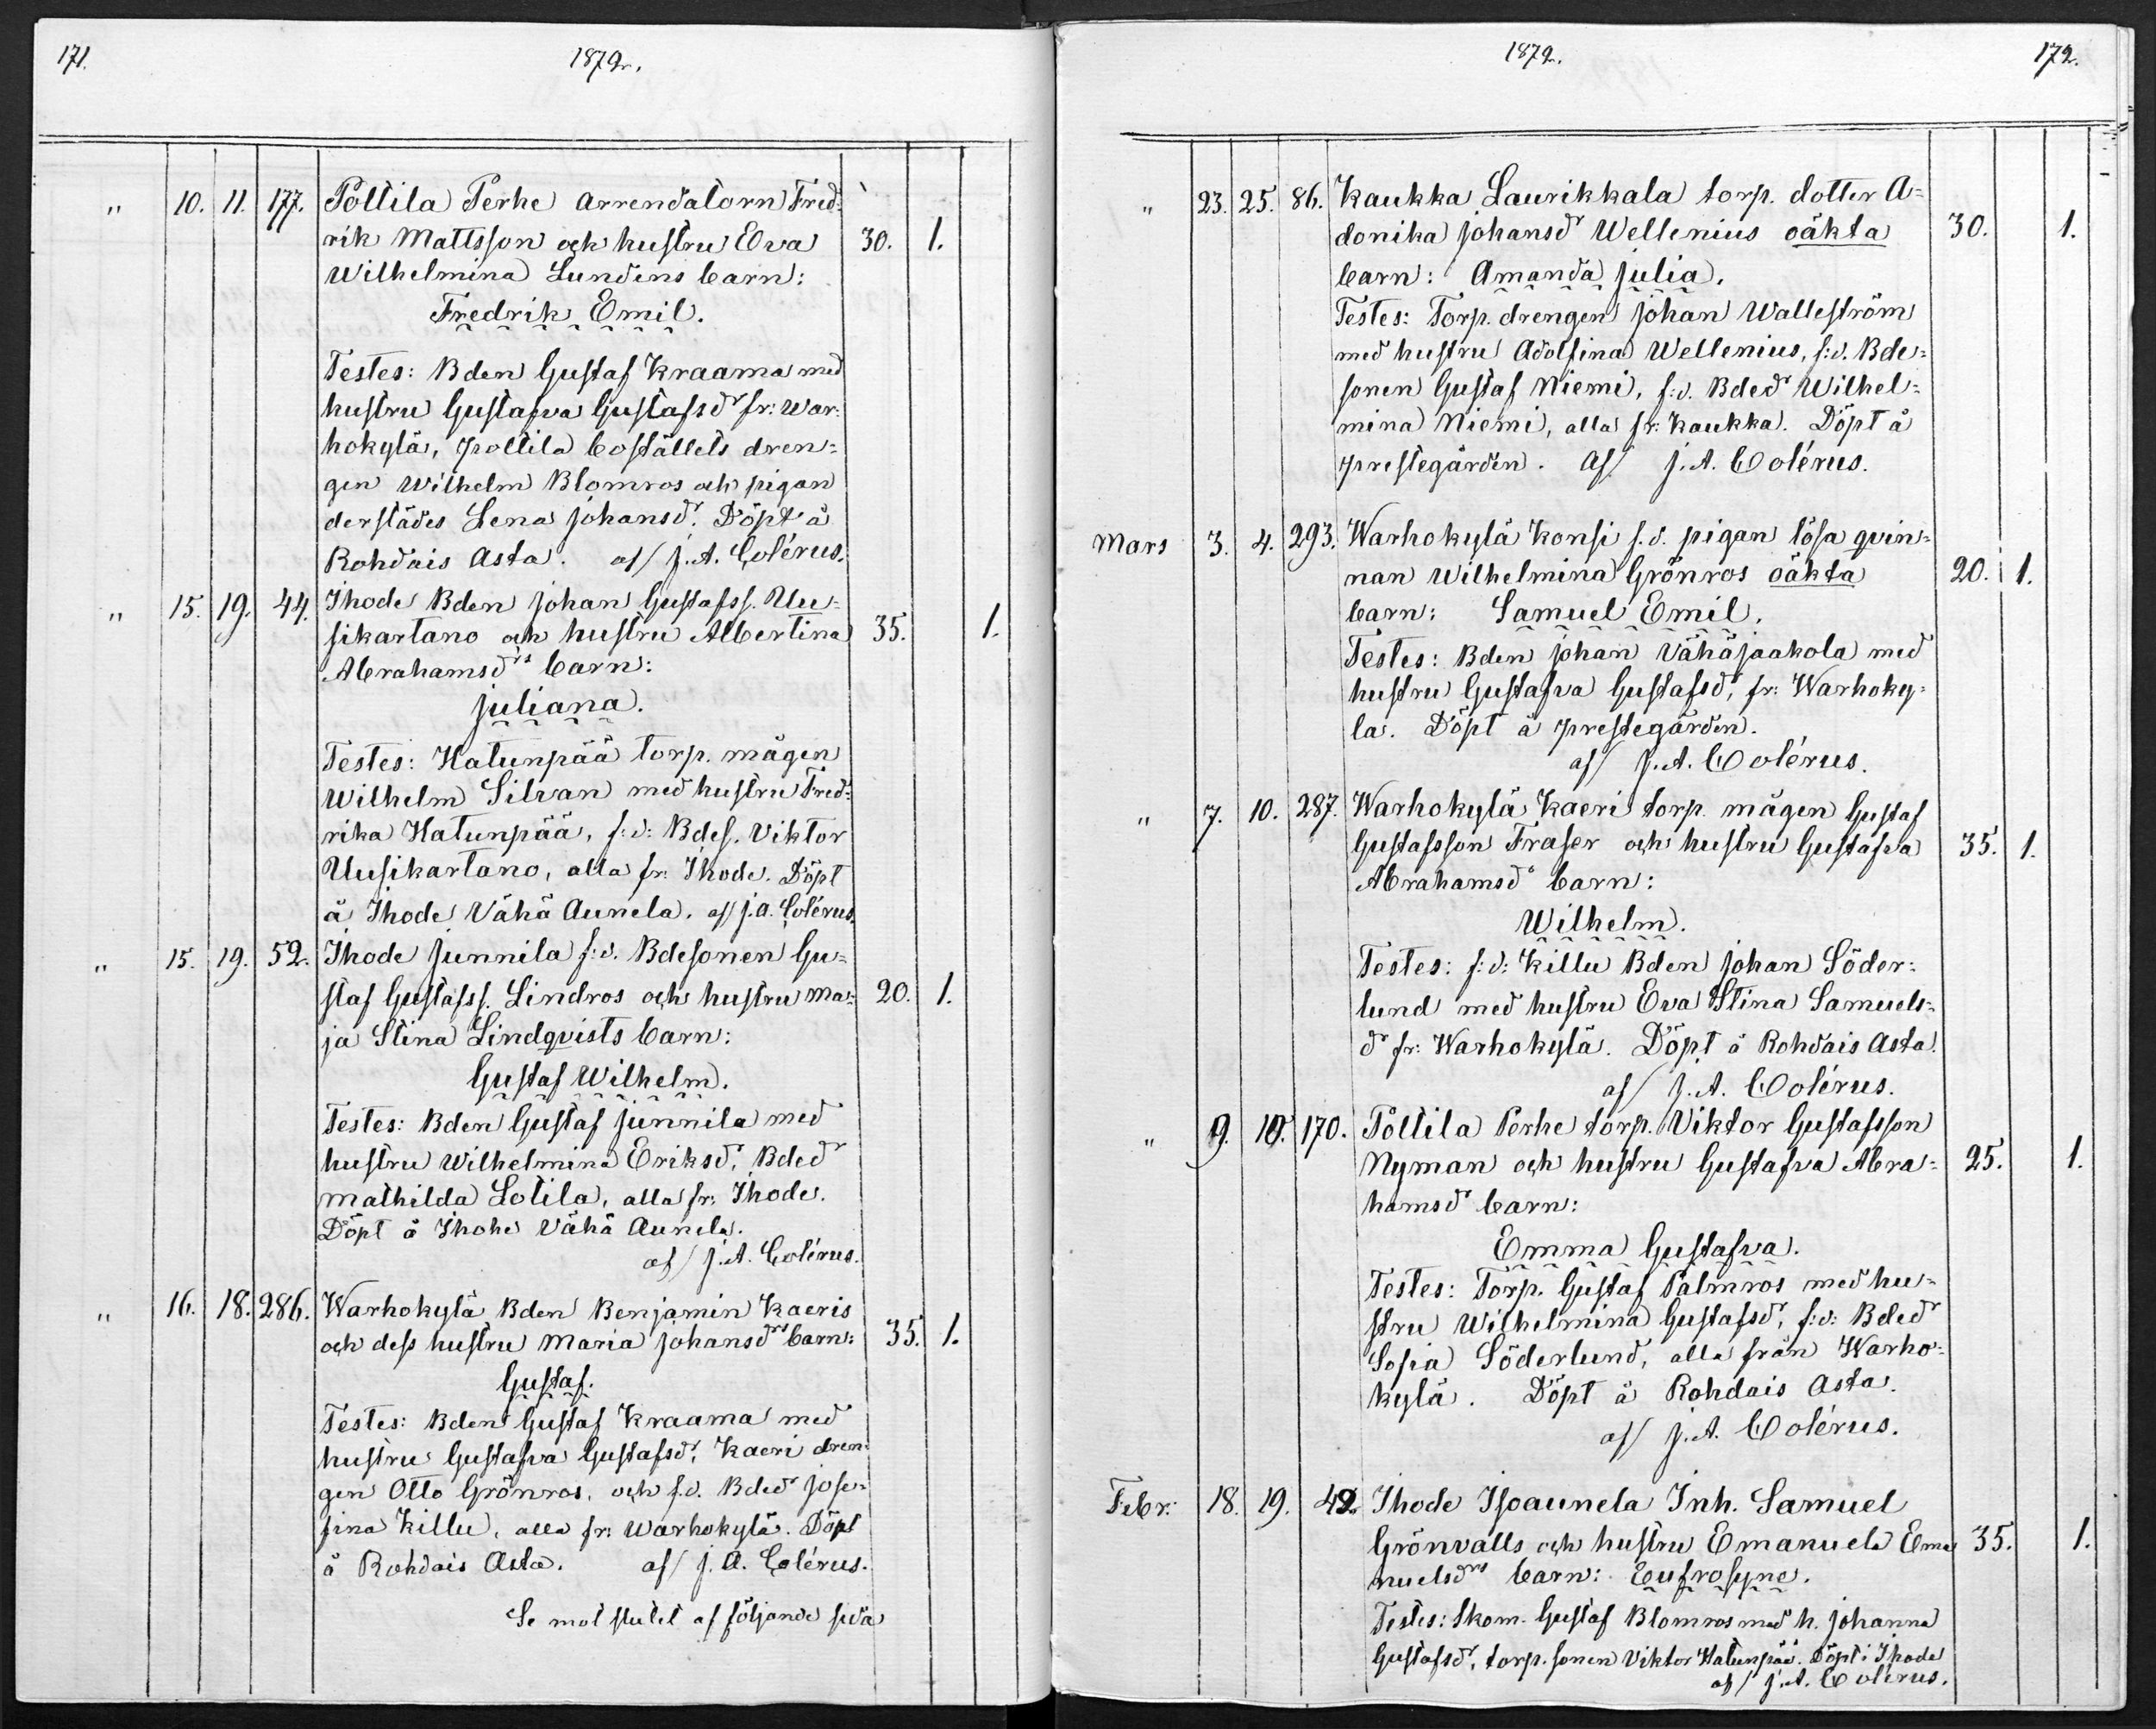 171.
1872.
" 10. 11. 177. Pollila Perhe arrendatorn Fred-
rik Mattsson och hustru Eva 30. 1.
Wilhelmina Lundens barn:
Fredrik Emil.
Testes: Bden Gustaf Kraama med
hustru Gustafva Gustafsdr fr: War-
hokylä, Pollila boställets dren-
gen Wilhelm Blomros och pigan
derstädes Lena Johansdr. Döpt å
Rohdais Asta. af J. A. Colérus.
" 15. 19. 44. Ihode Bden Johan Gustafss. Uu-
sikartano och hustru Albertina 35. 1.
Abrahamsdrs barn:
Juliana.
Testes: Hatunpää torp. mågen
Wilhelm Silvan med hustru Fred-
rika Hatunpää, f:d: Bdes. Viktor
Uusikartano, alla fr: Ihode. Döpt
å Ihode Vähä Aunela. af J. A. Colérus.
" 15. 19. 52. Ihode Junnila f:d. Bdesonen Gu-
staf Gustafss. Lindros och hustru Ma- 20. 1.
ja Stina Lindqvists barn:
Gustaf Wilhelm.
Testes: Bden Gustaf Junnila med
hustru Wilhelmina Eriksdr, Bdedr
Mathilda Lotila, alla fr: Ihode.
Döpt å Ihohe Vähä Aunela.
af J. A. Colérus.
" 16. 18. 286. Warhokylä Bden Benjamin Kaeris
och dess hustru Maria Johansdrs barn: 35. 1.
Gustaf.
Testes: Bden Gustaf Kraama med
hustru Gustafva Gustafsdr, Kaeri dren-
gen Otto Grönros, och f.d. Bdedr Jose-
fina Killu, alla fr: Warhokylä. Döpt
å Rohdais Asta. af J. A. Colérus.
Se mot slutet af följande sida
1872.
172.
" 23. 25. 86. Kaukka Laurikkala torp. dotter A-
donika Johansdr Wellenius oäkta 30. 1.
barn: Amanda Julia.
Testes: Torp. drengen Johan Walleström
med hustru Adolfina Wellenius, f:d. Bde-
sonen Gustaf Niemi, f:d. Bdedr Wilhel-
mina Niemi, alla fr: Kaukka. Döpt å
prestegården. Af J. A. Colérus.
Mars 3. 4. 293. Warhokylä Konsi f.d. pigan lösa qvin-
nan Wilhelmina Grönros oäkta 20. 1.
barn: Samuel Emil.
Testes: Bden Johan Vähäjaakola med
hustru Gustafva Gustafsdr, fr: Warhoky-
la. Döpt å prestegården.
af J. A. Colérus.
" 7. 10. 287. Warhokylä Kaeri torp. mågen Gustaf
Gustafsson Fraser och hustru Gustafva 35. 1.
Abrahamsdr barn:
Wilhelm.
Testes: f:d: Killu Bden Johan Söder-
lund med hustru Eva Stina Samuels-
dr fr: Warhokylä. Döpt å Rohdais Asta.
af J. A. Colérus.
" 9. 10. 170. Pollila Perhe torp. Viktor Gustafsson
Nyman och hustru Gustafva Abra- 25. 1.
hamsdr barn:
Emma Gustafva.
Testes: Torp. Gustaf Palmros med hu-
stru Wilhelmina Gustafsdr, f:d: Bdedr
Sofia Söderlund, alla från Warho-
kylä. Döpt å Rohdais Asta.
af J. A. Colérus.
Febr: 18. 19. 42. Ihode Isoaunela Inh. Samuel
Grönvalls och hustru Emanuela Ema 35. 1.
nuelsdrs barn: Eufrosyne.
Testes: Skom. Gustaf Blomros med h. Johanna
Gustafsdr, torp. sonen Viktor Hatunpää. Döpt i Ihode
af J. A. Colérus.